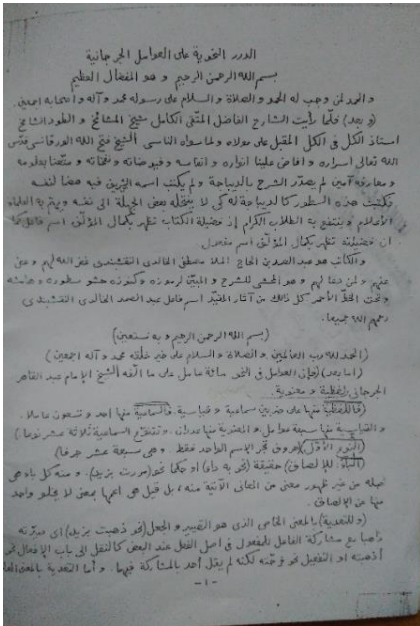 الدرر النحوية على العوامل الجرجانية
بسم الله الرحمن الرحيم وهو المفضال العظيم
والحمد لمن وجب له الحمد والصلاة والسلام على رسوله محمد وآله واصحابه اجمعين.
(وبعد) فلما رأيت الشارح الفاضل المتقى الكامل شيخ المشائخ والطود الشامخ
استاذ الكل في الكل المقبل على مولاه ولما سواه الناسى الشيخ فتح الله الورقانسى قدس
الله تعالى اسراره وافاض علينا انواره وانفاسه وفيوضاته ونفحاته ومتعنا بعلومه
ومعارفه آمين لم يصدر الشرح بالديباجة ولم يكتب اسمه الشريف فيه هضما لنفسه
فكتبت هذه السطور كالديباجة له كى لا ينتحله بعض الجهلة الى نفسه ويهتم به العلماء
الأعلام وينتفع به الطلاب الكرام إذ فضيلة الكتابة تظهر بكمال المؤلف اسم فاعل كما
ان فضيلته تظهر بكمال المؤلف اسم مفعول.
والكاتب هو عبد الصمد بن الحاج الملا مصطفى الخالدى النقشبندى غفر الله لهم وعفى
عنهم ولمن دعا لهم وهو المحشى للشرح والمبين لرموزه وكنوزه حشو سطوره وهامشه
وتحت الخط الأحمر كل ذلك من آثار المحشى اسم فاعل عبد الصمد الخالدى النقشبندى
رحمهم الله جميعا.
(بسم الله الرحمن الرحيم وبه نستعين)
(الحمد لله رب العالمين والصلاة والسلام على خير خلقه محمد وآله اجمعين)
(اما بعد) (فان العوامل في النحو مائة عامل على ما الفه الشيخ الإمام عبد القاهر
الجرجانى لفظية ومعنوية)
(فاللفظية منها على ضربين سماعية وقياسية. فالسماعية منها احد وتسعون عاملا.
والقياسية منها سبعة عوامل. والمعنوية منها عددان. وتتنوع السماعية ثلاثة عشر نوعا.)
(النوع الأول) (حروف تجر الإسم الواحد فقط. وهى سبعة عشر حرفا)
(الباء: للإلصاق) حقيقة (نحو به داء) او حكما نحو (مررت بزيد). ومنه كل باء هى
صلة من غير ظهور معنى من المعانى الآتية منه، بل قيل هى اعمها بمعنى لا يخلو واحد
منها عن الإلصاق.
(وللتعدية) بالمعنى الخاص الذى هو التغيير والجعل (نحو ذهبت بزيد) اى صيرته
ذاهبا مع مشاركة الفاعل للمفعول في اصل الفعل عند البعض كالنقل الى باب الإفعال نحو
أذهبته او التفعيل نحو فرحته لكنه لم يقل احد بالمشاركة فيهما. وأما التعدية بالمعنى العام
-١-